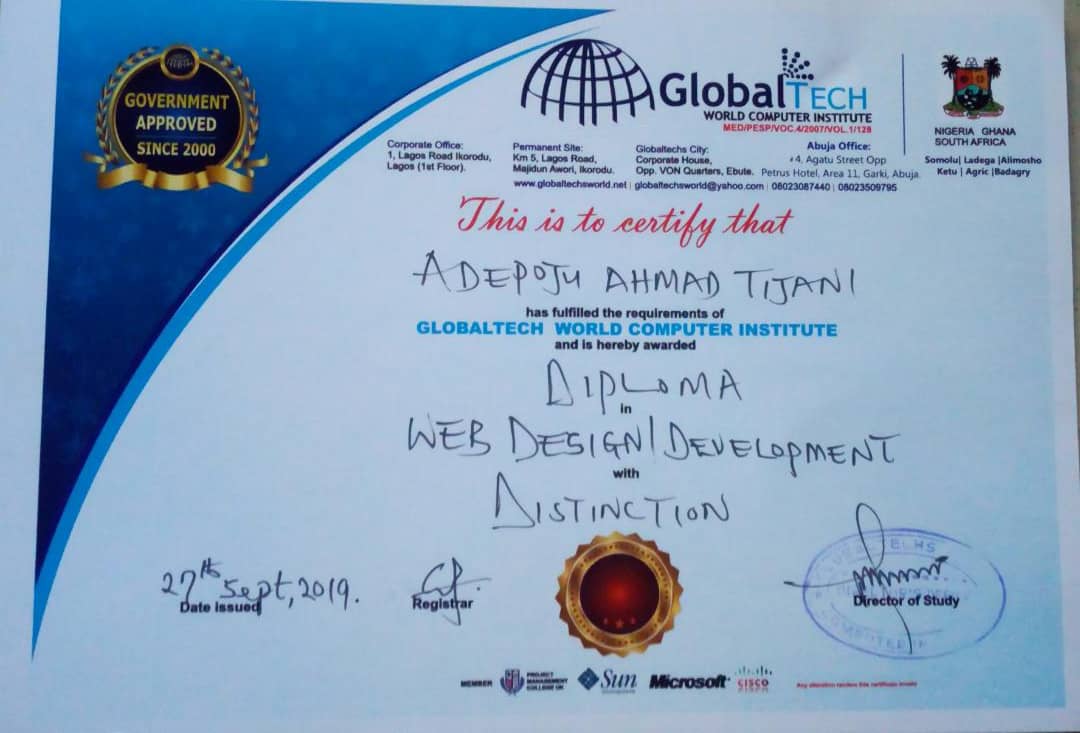 GOVERNMENT
APPROVED
SINCE 2000
GlobalTECH
WORLD COMPUTER INSTITUTE
MED/PESP/VOC.4/2007/VOL.1/128
NIGERIA GHANA
SOUTH AFRICA
Somolu| Ladega |Alimosho
Ketu | Agric |Badagry
Corporate Office:
1, Lagos Road Ikorodu,
Lagos (1st Floor).
Permanent Site:
Km 5, Lagos Road,
Majidun Awori, Ikorodu.
Globaltechs City:
Corporate House,
Opp. VON Quarters, Ebute.
Abuja Office:
4, Agatu Street Opp
Petrus Hotel, Area 11, Garki, Abuja.
www.globaltechsworld.net | globaltechsworld@yahoo.com | 08023087440 | 08023509795
This is to certify that
ADEPOJU AHMAD TIJANI
has fulfilled the requirements of
GLOBALTECH WORLD COMPUTER INSTITUTE
and is hereby awarded
DIPLOMA
in
WEB DESIGN/DEVELOPMENT
with
DISTINCTION
27th Sept, 2019.
Date issued
Registrar
Director of Study
MEMBER
PROJECT
MANAGEMENT
COLLEGE UK
Sun
Microsoft
CISCO
Any alteration renders this certificate invalid